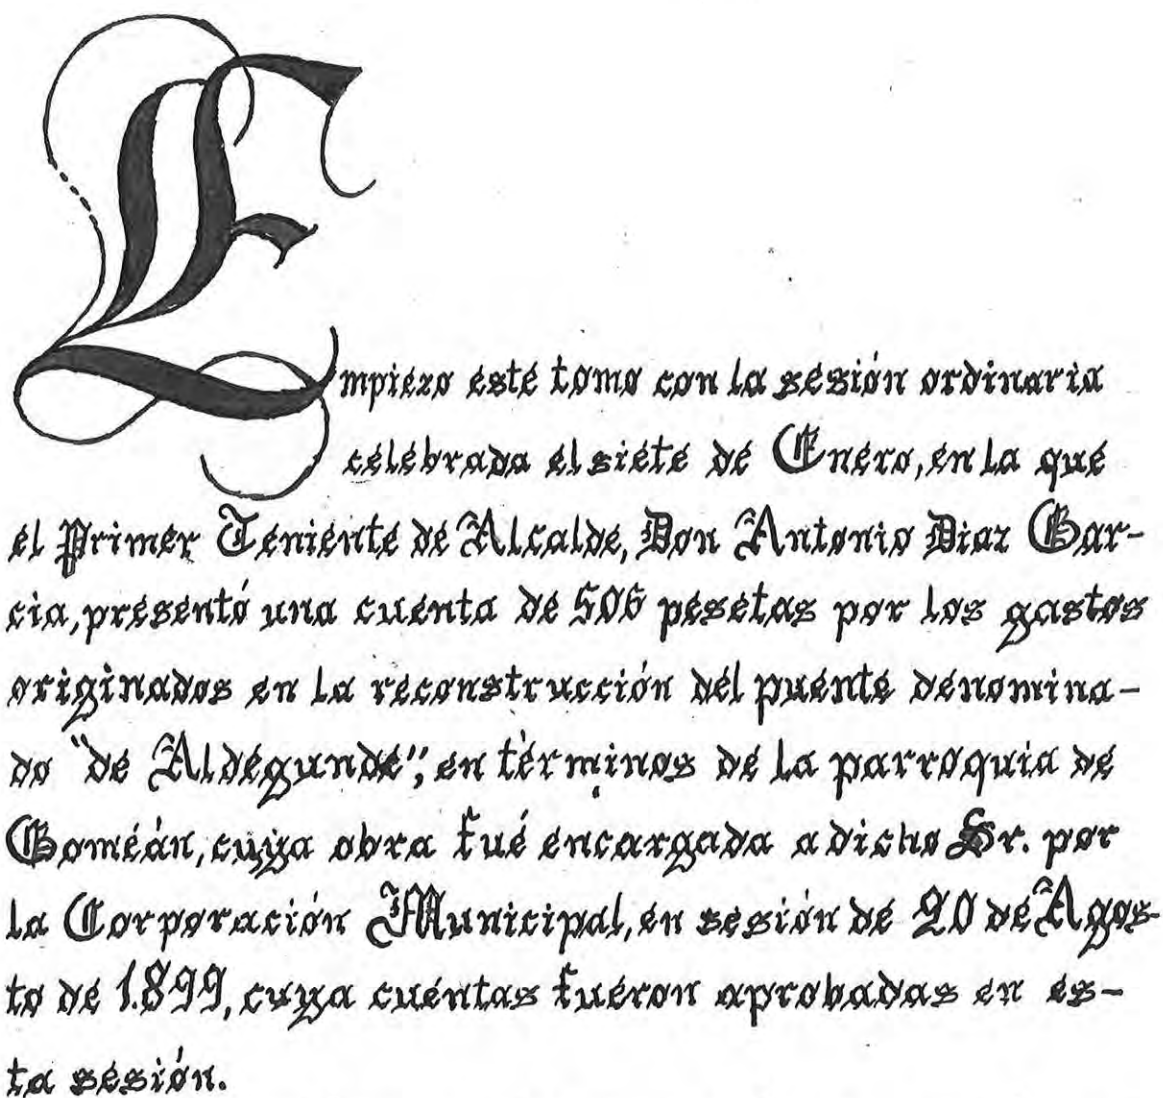 Empiezo este tomo con la sesión ordinaria
celebrada el siete de Enero, en la que
el Primer Teniente de Alcalde, Don Antonio Diaz Gar-
cia, presentó una cuenta de 506 pesetas por los gastos
originados en la reconstrucción del puente denomina-
do "de Aldegunde", en términos de la parroquia de
Goméán, cuya obra fué encargada a dicho Sr. por
la Corporación Municipal, en sesión de 20 de Agos-
to de 1.899, cuya cuentas fueron aprobadas en es-
ta sesión.